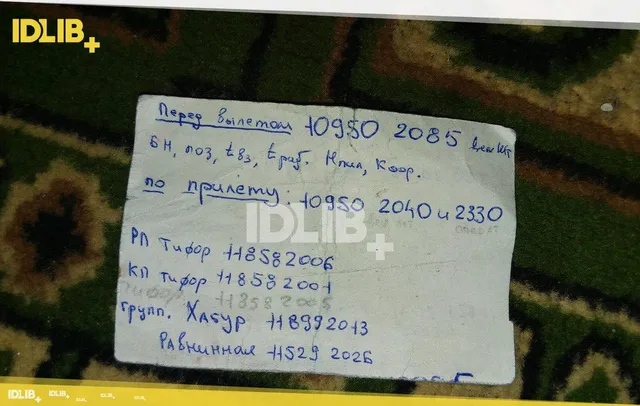 IDLIB+
Перед вылетом 10950 2085
БН, поз, tвз, tраб. Нпил, Коор.
по прилёту: 10950 2040 и 2330
IDLIB+
РП Тифор 118582006
КП Тифор 118582001
Тифор 118582005
групп. Хабур 118992013
Равнинная 11529 2026
IDLIB+